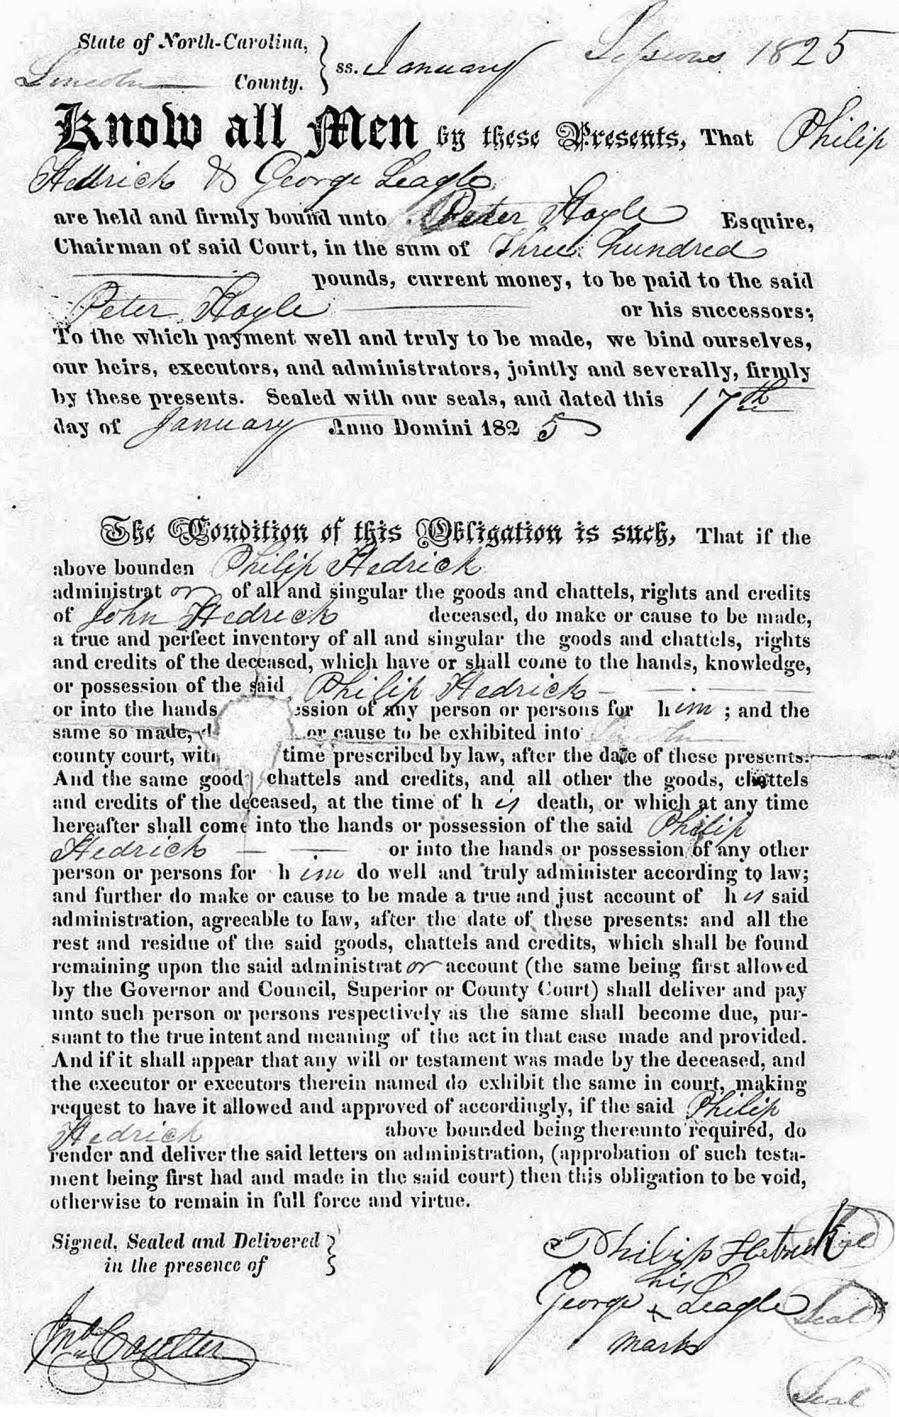 State of North-Carolina,
Lincoln County. } ss. January Sessions 1825
Know all Men by these Presents, That Philip
Hedrick & George Seagle
are held and firmly bound unto Peter Hoyle Esquire,
Chairman of said Court, in the sum of Three hundred
pounds, current money, to be paid to the said
Peter Hoyle or his successors;
To the which payment well and truly to be made, we bind ourselves,
our heirs, executors, and administrators, jointly and severally, firmly
by these presents. Sealed with our seals, and dated this 17th
day of January Anno Domini 1825
The Condition of this Obligation is such, That if the
above bounden Philip Hedrick
administrator of all and singular the goods and chattels, rights and credits
of John Hedrick deceased, do make or cause to be made,
a true and perfect inventory of all and singular the goods and chattels, rights
and credits of the deceased, which have or shall come to the hands, knowledge,
or possession of the said Philip Hedrick
or into the hands ession of any person or persons for him; and the
same so made, or cause to be exhibited into Lincoln
county court, with time prescribed by law, after the date of these presents.
And the same goods chattels and credits, and all other the goods, chattels
and credits of the deceased, at the time of his death, or which at any time
hereafter shall come into the hands or possession of the said Philip
Hedrick or into the hands or possession of any other
person or persons for him do well and truly administer according to law;
and further do make or cause to be made a true and just account of his said
administration, agreeable to law, after the date of these presents: and all the
rest and residue of the said goods, chattels and credits, which shall be found
remaining upon the said administrator account (the same being first allowed
by the Governor and Council, Superior or County Court) shall deliver and pay
unto such person or persons respectively as the same shall become due, pur-
suant to the true intent and meaning of the act in that case made and provided.
And if it shall appear that any will or testament was made by the deceased, and
the executor or executors therein named do exhibit the same in court, making
request to have it allowed and approved of accordingly, if the said Philip
Hedrick above bounded being thereunto required, do
render and deliver the said letters on administration, (approbation of such testa-
ment being first had and made in the said court) then this obligation to be void,
otherwise to remain in full force and virtue.
Signed, Sealed and Delivered }
in the presence of
Philip Hetrick Seal
his
George x Seagle Seal
mark
Jno Coulter
Seal